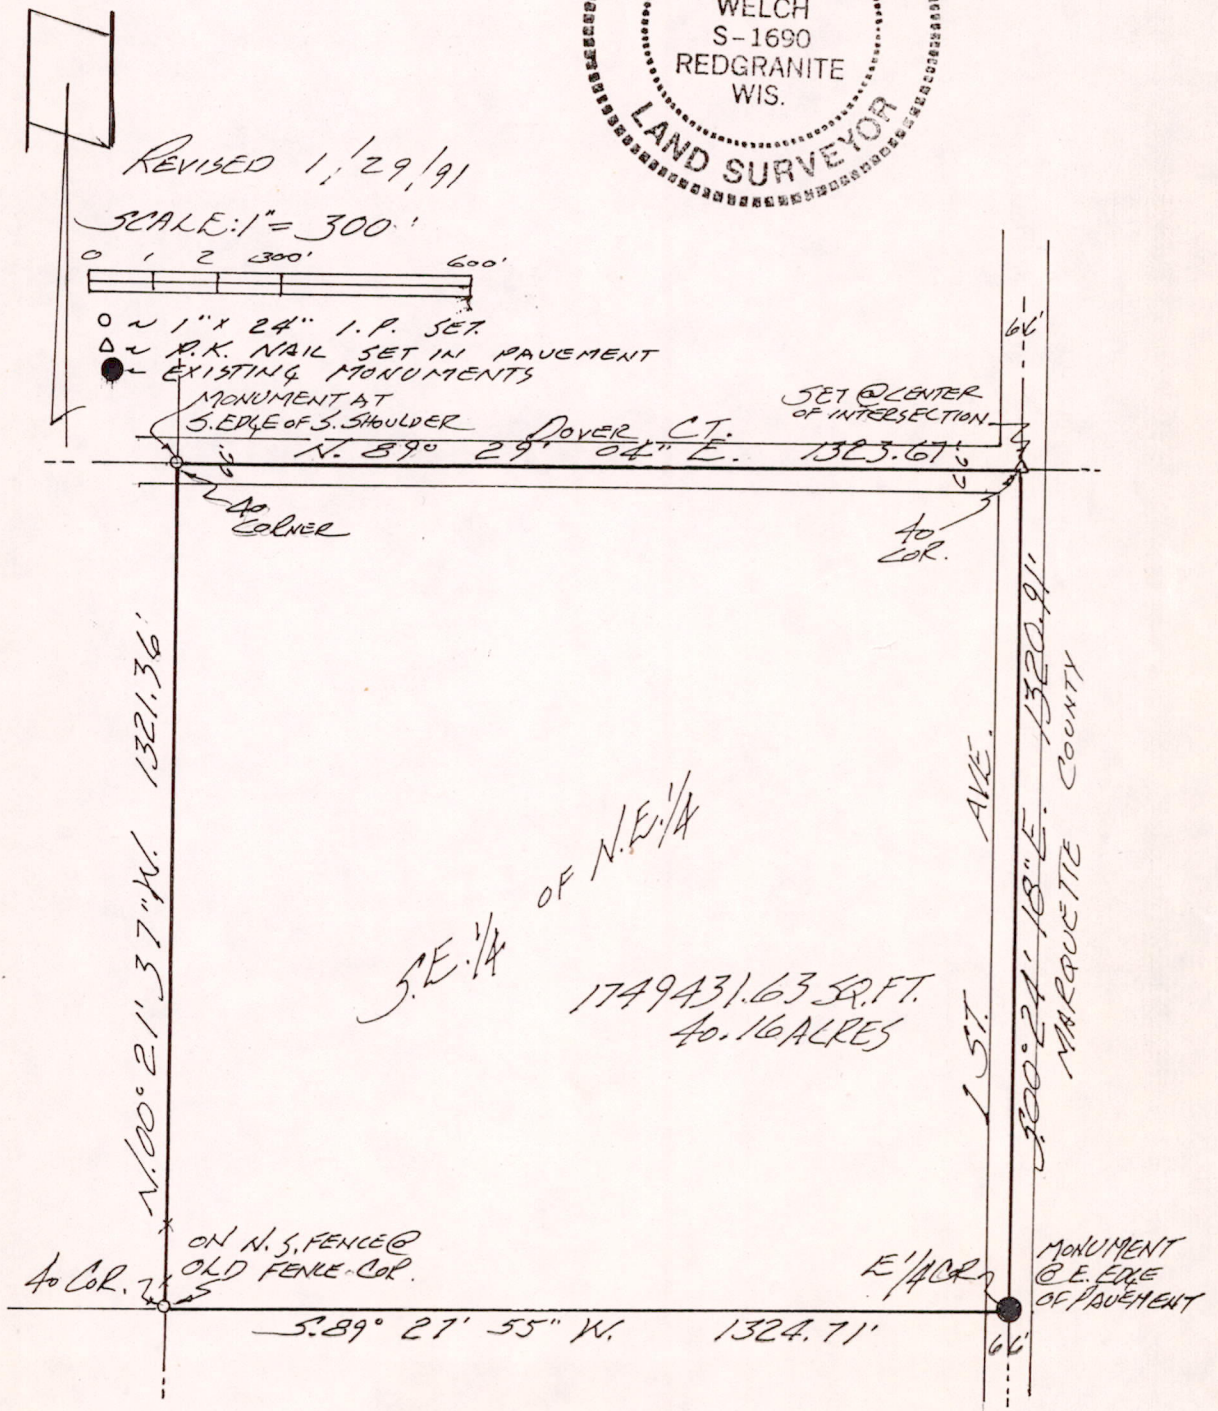 WELCH
S-1690
REDGRANITE
WIS.
LAND SURVEYOR
REVISED 1/29/91
SCALE: 1" = 300'
0 1 2 300' 600'
○ ~ 1" X 24" I.P. SET.
△ ~ P.K. NAIL SET IN PAVEMENT
● ~ EXISTING MONUMENTS
MONUMENT AT
S. EDGE OF S. SHOULDER
SET @ CENTER
OF INTERSECTION
66'
DOVER CT.
N. 89° 29' 04" E. 1323.67'
66'
66'
40
CORNER
40
COR.
N. 00° 21' 37" W. 1321.36'
S. 00° 24' 18" E. 1320.91'
MARQUETTE COUNTY
1 ST. AVE.
S.E. 1/4 OF N.E. 1/4
1749431.63 SQ. FT.
40.16 ACRES
ON N. S. FENCE @
OLD FENCE COR.
40 COR.
E 1/4 COR.
MONUMENT
@ E. EDGE
OF PAVEMENT
S. 89° 27' 55" W. 1324.71'
66'